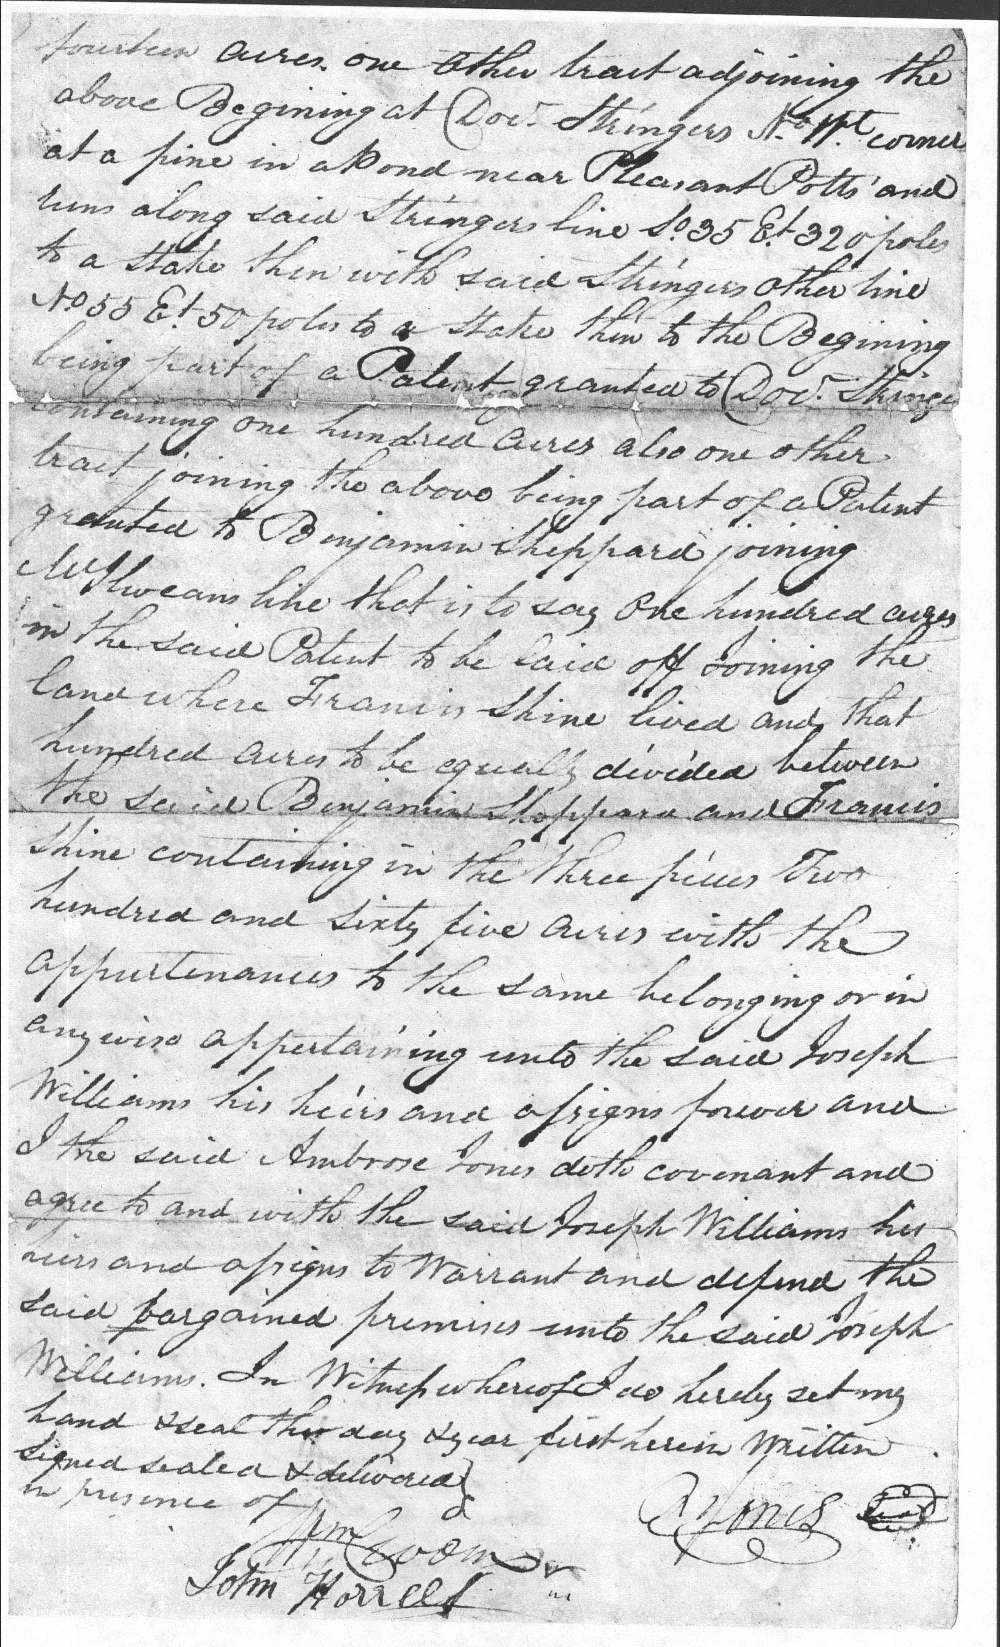 fourteen acres. one other tract adjoining the
above Begining at Doct. Stringers No. Wt. corner
at a pine in a Pond near Pleasant Potts and
runs along said Stringers line So. 35 Et. 320 poles
to a Stake then with said Stringers other line
No. 55 Et. 50 poles to a Stake then to the Begining
being part of a Patent granted to Doct. Stringer
containing one hundred acres also one other
tract joining the above being part of a Patent
granted to Benjamin Sheppard joining
McIlweans line that is to say One hundred acres
in the said Patent to be laid off Joining the
land where Francis Shine lived and that
hundred acres to be equally divided between
the said Benjamin Sheppard and Francis
Shine containing in the three pieces Two
hundred and sixty five acres with the
appurtenances to the same belonging or in
anywise appertaining unto the said Joseph
Williams his heirs and assigns forever and
I the said Ambrose Jones doth covenant and
agree to and with the said Joseph Williams his
heirs and assigns to Warrant and defend the
said bargained premises unto the said Joseph
Williams. In Witness whereof I do hereby set my
hand & seal the day & year first herein Written
Signed sealed & delivered
in presence of
A Jones Seal
Wm Croom
John Horrell